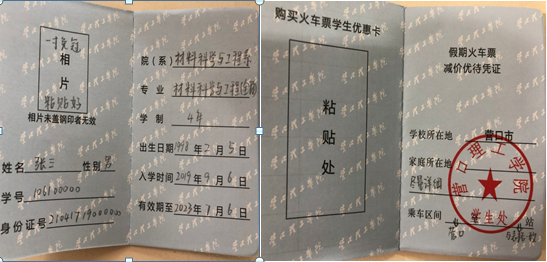 一寸免冠
相
片
粘贴好
相片未盖钢印者无效
姓名 张三 性别 男
学号 106100000
身份证号
院(系) 材料科学与工程系
专业 材料科学与工程
学制 4年
出生日期 1998年2月5日
入学时间 2019年9月6日
有效期至 2023年7月6日
购买火车票学生优惠卡
粘
贴
处
假期火车票
减价优待凭证
学校所在地 营口市
家庭所在地
尽量详细
乘车区间
营口
站
营口理工学院
学生处